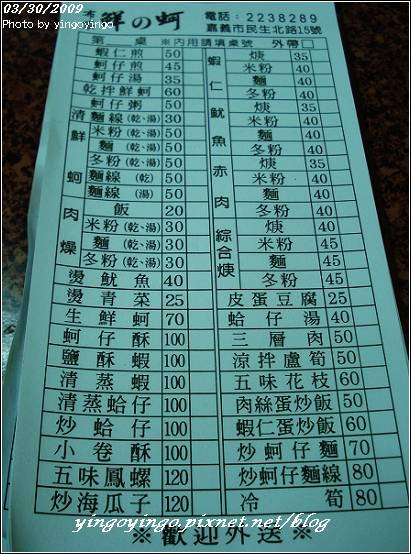 03/30/2009
Photo by yingoyingo
鮮の蚵
電話:2238289
嘉義市民生北路15號
第 桌 ※內用請填桌號 外帶□
蝦仁煎 50
蚵仔煎 45
蚵仔湯 35
乾拌鮮蚵 60
蚵仔粥 50
清麵線(乾、湯) 30
鮮蚵
米粉(乾、湯) 50
麵(乾、湯) 50
冬粉(乾、湯) 50
麵線(乾) 50
麵線(湯) 50
肉燥
飯 20
米粉(乾、湯) 30
麵(乾、湯) 30
冬粉(乾、湯) 30
燙魷魚 40
燙青菜 25
生鮮蚵 70
蚵仔酥 100
鹽酥蝦 100
清蒸蝦 100
清蒸蛤仔 100
炒蛤仔 100
小卷酥 100
五味鳳螺 120
炒海瓜子 120
蝦仁
焿 35
米粉 40
麵 40
冬粉 40
魷魚
焿 35
米粉 40
麵 40
冬粉 40
赤肉
焿 35
米粉 40
麵 40
冬粉 40
綜合焿
焿 40
米粉 45
麵 45
冬粉 45
皮蛋豆腐 25
蛤仔湯 40
三層肉 50
涼拌蘆筍 50
五味花枝 60
肉絲蛋炒飯 50
蝦仁蛋炒飯 60
炒蚵仔麵 70
炒蚵仔麵線 80
冷筍 80
yingoyingo.pixnet.net/blog
※歡迎外送※